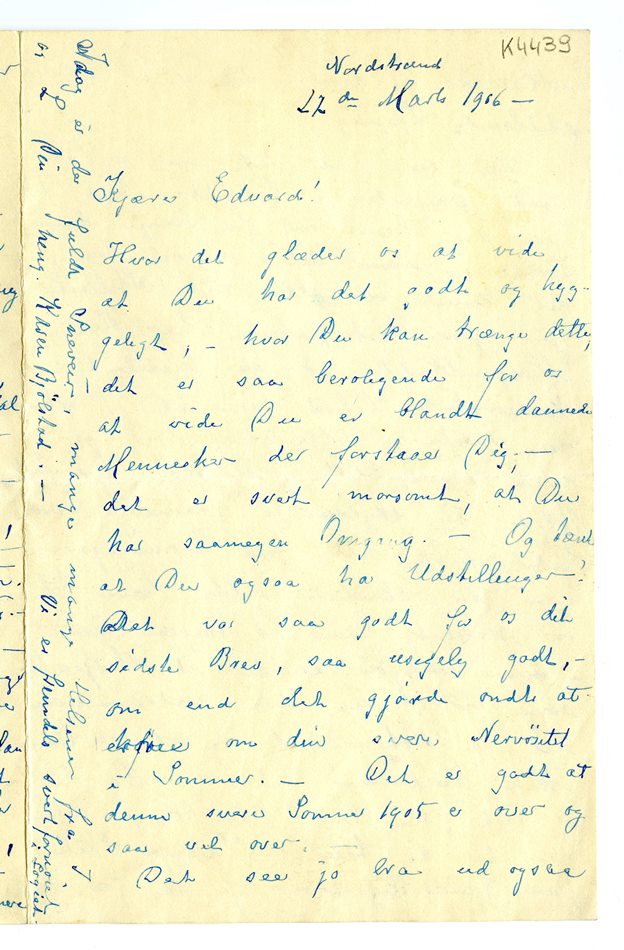 K4439
Nordstrand
27 de Marts 1906 —
Kjære Edvard!
Hvor det glæder os at vide,
at Du har det godt og hyg-
geligt, — hvor Du kan trænge dette,
det er saa beroligende for os
at vide Du er blandt dannede
Mennesker der forstaaer Dig; —
det er svært morsomt, at Du
har saamegen Omgang. — Og tænk
at Du ogsaa har Udstillinger!
Det var saa godt for os dit
sidste Brev, saa usigelig godt, —
om end det gjorde ondt at
erfare om din svære Nervösitet
i Sommer. — Det er godt at
denne svære Sommer 1905 er over og
saa vel over. —
Det seer jo bra ud ogsaa
Idag er der fuldt Sneveir, mange mange Hilsener fra I
og L Din heng. Karen Bjølstad. —
Vi er fremdeles svært fornøiet
i Logiet.